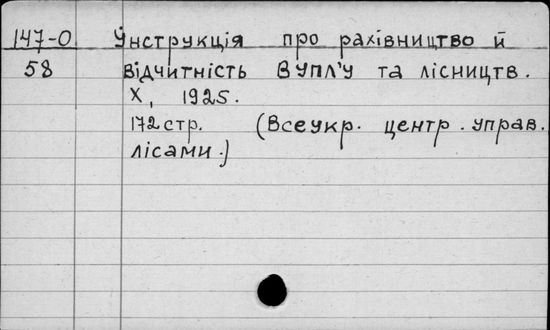 147-0 Інструкція про рахівництво й
58 відчитність ВУПЛ'У та лісництв.
Х, 1925.
172 стр. (Всеукр. центр. управ.
лісами.)